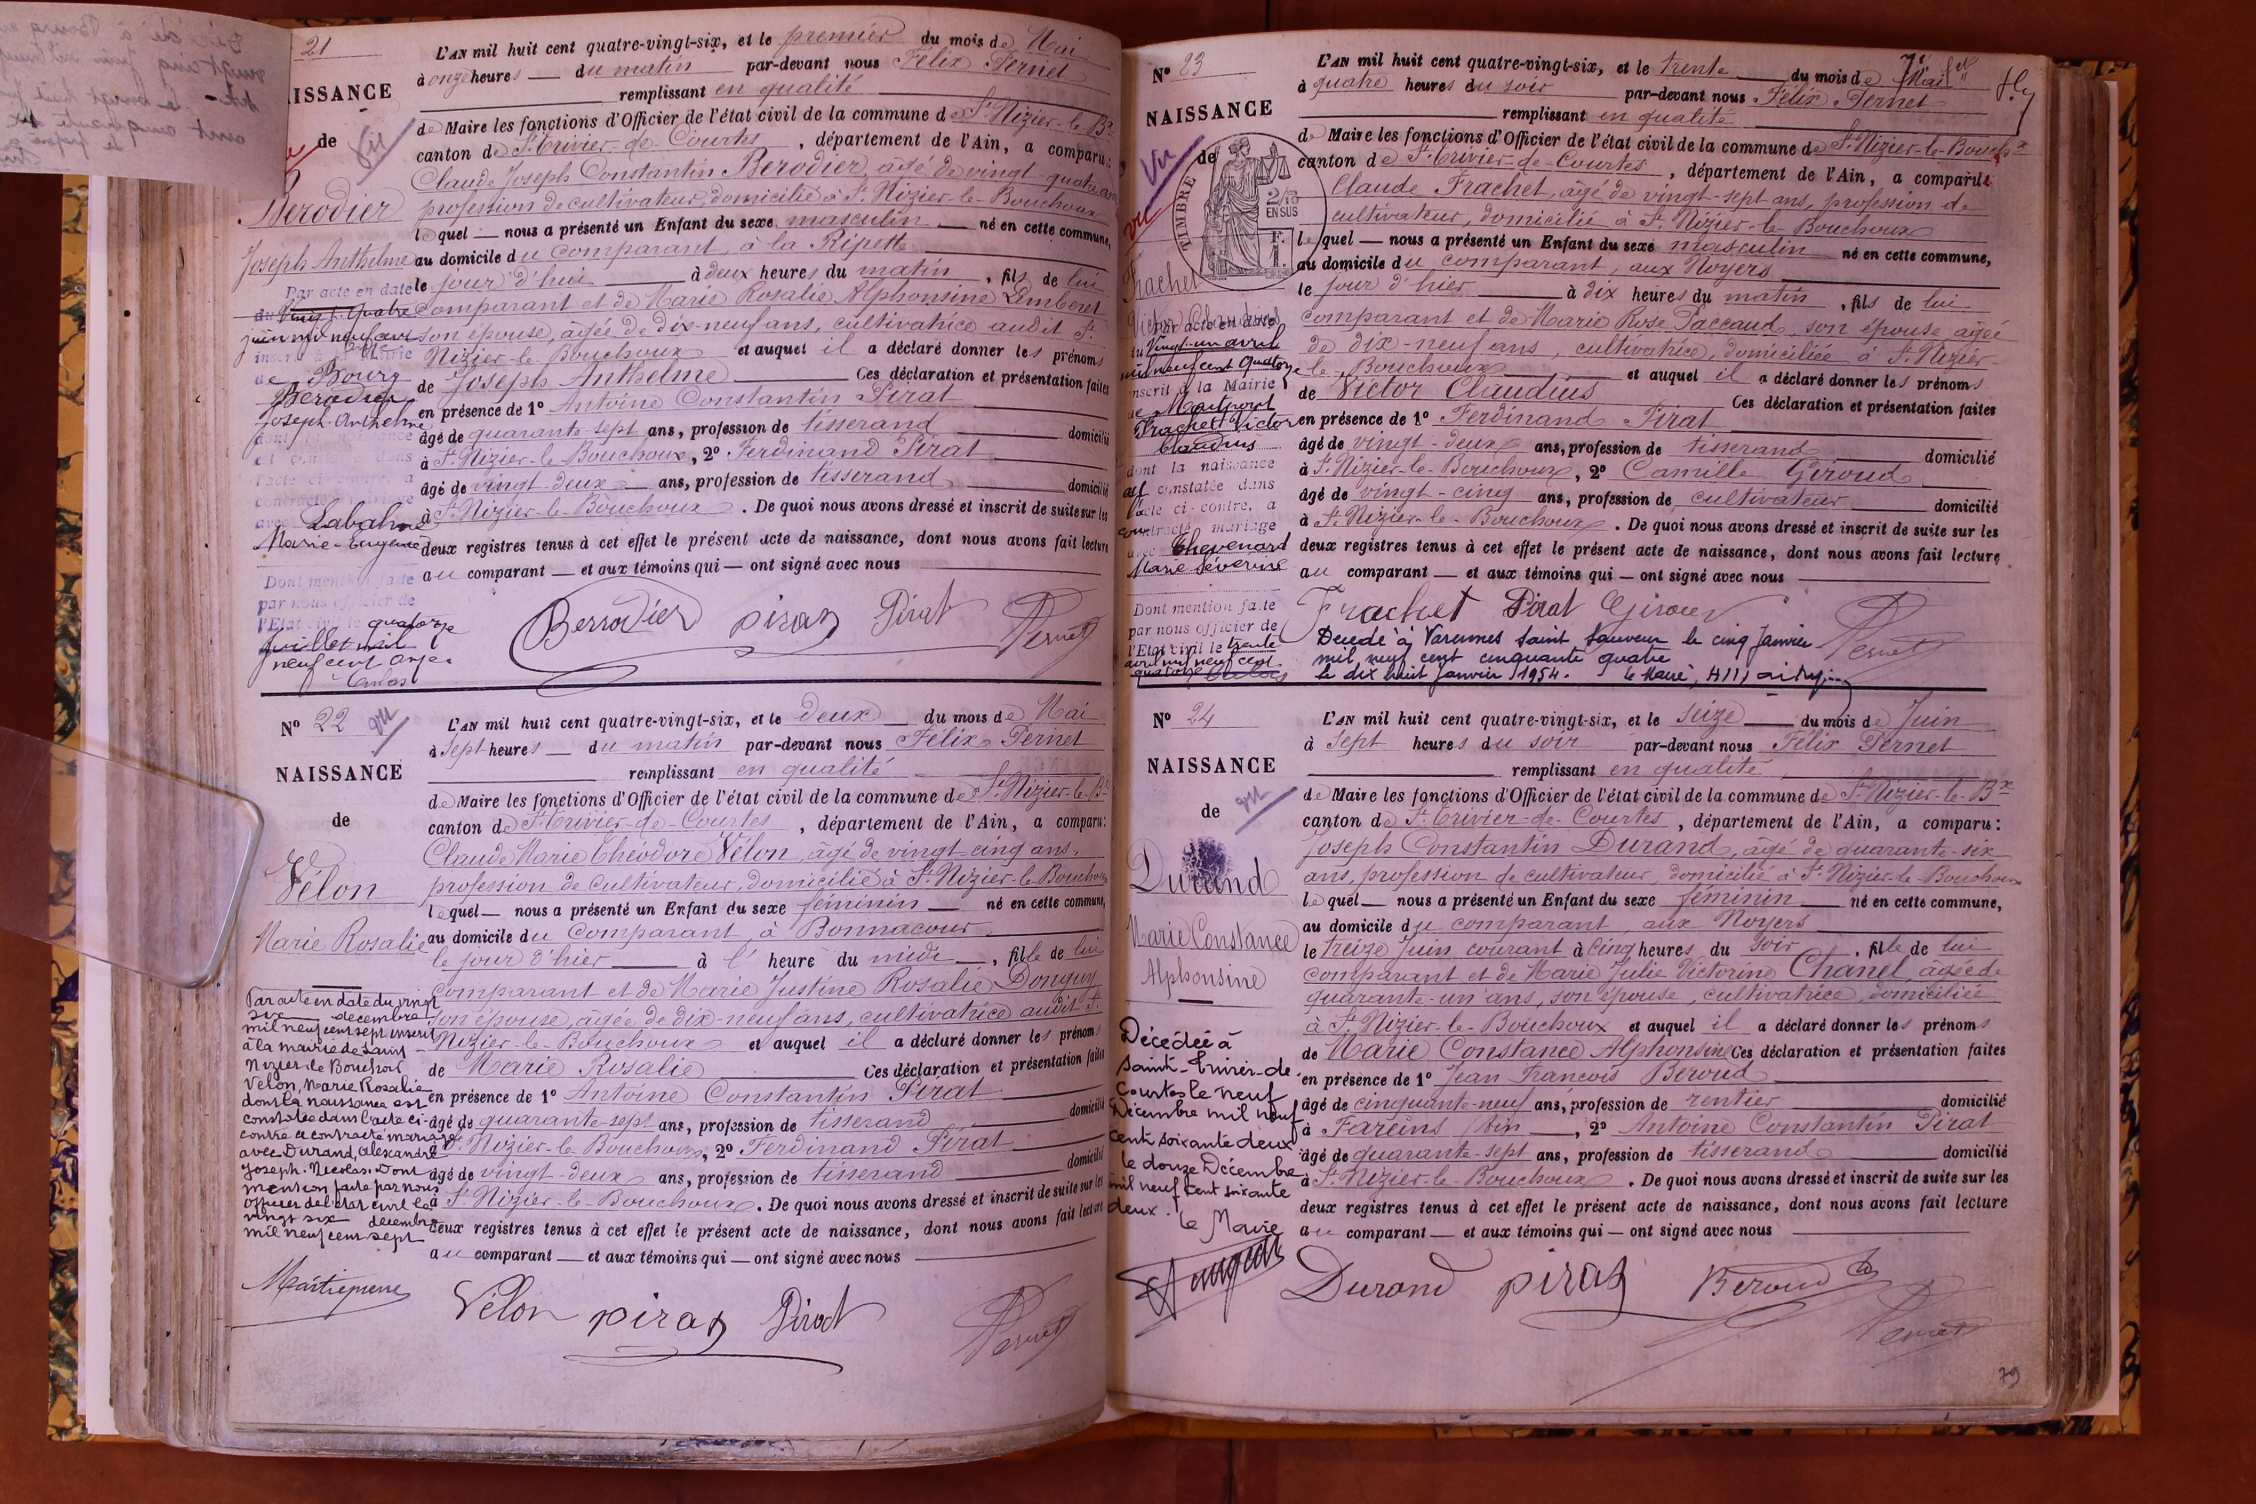 21
L'AN mil huit cent quatre-vingt-six, et le premier du mois de Mai
à onze heures — du matin par-devant nous Félix Pernet
remplissant en qualité
NAISSANCE
de
vu
de Maire les fonctions d'Officier de l'état civil de la commune de St Nizier-le-Bx
canton de St Trivier-de-Courtes, département de l'Ain, a comparu:
Claude Joseph Constantin Berodier, âgé de vingt-quatre ans
Berodier
profession de cultivateur, domicilié à St Nizier-le-Bouchoux
lequel — nous a présenté un Enfant du sexe masculin — né en cette commune,
Joseph Anthelme
au domicile du comparant, à la Ripette
le jour d'hui à deux heures du matin, fils de lui
comparant et de Marie Rosalie Alphonsine Limberet
son épouse, âgée de dix-neuf ans, cultivatrice audit St
Nizier-le-Bouchoux et auquel il a déclaré donner les prénoms
de Joseph Anthelme Ces déclaration et présentation faites
en présence de 1° Antoine Constantin Pirat
âgé de quarante-sept ans, profession de tisserand domicilié
à St Nizier-le-Bouchoux, 2° Ferdinand Pirat
âgé de vingt-deux ans, profession de tisserand domicilié
à St Nizier-le-Bouchoux. De quoi nous avons dressé et inscrit de suite sur les
deux registres tenus à cet effet le présent acte de naissance, dont nous avons fait lecture
au comparant — et aux témoins qui — ont signé avec nous
Par acte en date
du vingt quatre
juin mil neuf cent
onze
inscrit à la Mairie
de Bourg
Berodier
Joseph Anthelme
dont la naissance
est constatée dans
l'acte ci-contre, a
contracté mariage
avec Labalme
Marie-Eugénie
Dont mention faite
par nous officier de
l'Etat civil le quatorze
juillet mil
neuf cent onze.
Berrodier piras Pirat Pernet
N° 22 vu
L'AN mil huit cent quatre-vingt-six, et le deux du mois de Mai
à sept heures — du matin par-devant nous Félix Pernet
NAISSANCE
remplissant en qualité
de Maire les fonctions d'Officier de l'état civil de la commune de St Nizier-le-Bx
de
canton de St Trivier-de-Courtes, département de l'Ain, a comparu:
Claude Marie Théodore Vélon, âgé de vingt-cinq ans,
Vélon
profession de cultivateur, domicilié à St Nizier-le-Bouchoux
lequel — nous a présenté un Enfant du sexe féminin — né en cette commune,
Marie Rosalie
au domicile du comparant, à Bonnacour
le jour d'hier à l' heure du midi —, fille de lui
comparant et de Marie Justine Rosalie Donguy
son épouse, âgée de dix-neuf ans, cultivatrice audit St
Nizier-le-Bouchoux et auquel il a déclaré donner les prénoms
de Marie Rosalie Ces déclaration et présentation faites
en présence de 1° Antoine Constantin Pirat
âgé de quarante-sept ans, profession de tisserand domicilié
à St Nizier-le-Bouchoux, 2° Ferdinand Pirat
âgé de vingt-deux ans, profession de tisserand domicilié
à St Nizier-le-Bouchoux. De quoi nous avons dressé et inscrit de suite sur les
deux registres tenus à cet effet le présent acte de naissance, dont nous avons fait lecture
au comparant — et aux témoins qui — ont signé avec nous
Par acte en date du vingt
six decembre
mil neuf cent sept inscrit
à la mairie de Saint
Nizier le Bouchoux
Vélon, Marie Rosalie
dont la naissance est
constatée dans l'acte ci-
contre a contracté mariage
avec Durand, Alexandre
Joseph. Nicolas. Dont
mention faite par nous
officier de l'état civil le
vingt six decembre
mil neuf cent sept
Vélon piras Pirat Pernet
N° 23
L'AN mil huit cent quatre-vingt-six, et le trente du mois de Mai
à quatre heures du soir par-devant nous Félix Pernet
NAISSANCE
remplissant en qualité
de
Vu
vu
TIMBRE
2/10 EN SUS
F. 1
de Maire les fonctions d'Officier de l'état civil de la commune de St Nizier-le-Bouchx
canton de St Trivier-de-Courtes, département de l'Ain, a comparu:
Claude Frachet, âgé de vingt-sept ans, profession de
cultivateur, domicilié à St Nizier-le-Bouchoux
lequel — nous a présenté un Enfant du sexe masculin né en cette commune,
au domicile du comparant, aux Noyers
Frachet
le jour d'hier à dix heures du matin, fils de lui
Victor Claudius
comparant et de Marie Rose Paccaud, son épouse âgée
de dix-neuf ans, cultivatrice, domiciliée à St Nizier-
le-Bouchoux et auquel il a déclaré donner les prénoms
de Victor Claudius Ces déclaration et présentation faites
en présence de 1° Ferdinand Pirat
âgé de vingt-deux ans, profession de tisserand domicilié
à St Nizier-le-Bouchoux, 2° Camille Giroud
âgé de vingt-cinq ans, profession de cultivateur domicilié
à St Nizier-le-Bouchoux. De quoi nous avons dressé et inscrit de suite sur les
deux registres tenus à cet effet le présent acte de naissance, dont nous avons fait lecture
au comparant — et aux témoins qui — ont signé avec nous
Par acte en date
du Vingt-un avril
mil neuf cent quatorze
inscrit à la Mairie
de Montpont
Frachet Victor
Claudius
dont la naissance
est constatée dans
l'acte ci-contre, a
contracté mariage
avec Thevenard
Marie Séverine
Dont mention faite
par nous officier de
l'Etat civil le trente
avril mil neuf cent
quatorze
Frachet Pirat Giroud Pernet
Décédé à Varennes Saint Sauveur le cinq Janvier
mil neuf cent cinquante quatre
le dix huit Janvier 1954. le Maire,
N° 24
L'AN mil huit cent quatre-vingt-six, et le seize du mois de Juin
à sept heures du soir par-devant nous Félix Pernet
NAISSANCE
remplissant en qualité
de
vu
de Maire les fonctions d'Officier de l'état civil de la commune de St Nizier-le-Bx
canton de St Trivier-de-Courtes, département de l'Ain, a comparu:
Joseph Constantin Durand, âgé de quarante-six
Durand
ans, profession de cultivateur, domicilié à St Nizier-le-Bouchoux
lequel — nous a présenté un Enfant du sexe féminin — né en cette commune,
au domicile du comparant, aux Noyers
Marie Constance
Alphonsine
le treize Juin courant à cinq heures du soir, fille de lui
comparant et de Marie Julie Victorine Chanel, âgée de
quarante-un ans, son épouse, cultivatrice, domiciliée
à St Nizier-le-Bouchoux et auquel il a déclaré donner les prénoms
de Marie Constance Alphonsine Ces déclaration et présentation faites
en présence de 1° Jean François Beroud
âgé de cinquante-neuf ans, profession de rentier domicilié
à Fareins Ain, 2° Antoine Constantin Pirat
âgé de quarante-sept ans, profession de tisserand domicilié
à St Nizier-le-Bouchoux. De quoi nous avons dressé et inscrit de suite sur les
deux registres tenus à cet effet le présent acte de naissance, dont nous avons fait lecture
au comparant — et aux témoins qui — ont signé avec nous
Décédée à
Saint-Trivier-de-
Courtes le neuf
Décembre mil neuf
cent soixante deux
le douze Décembre
mil neuf cent soixante
deux. le Maire
Durand piras Beroud Pernet
79